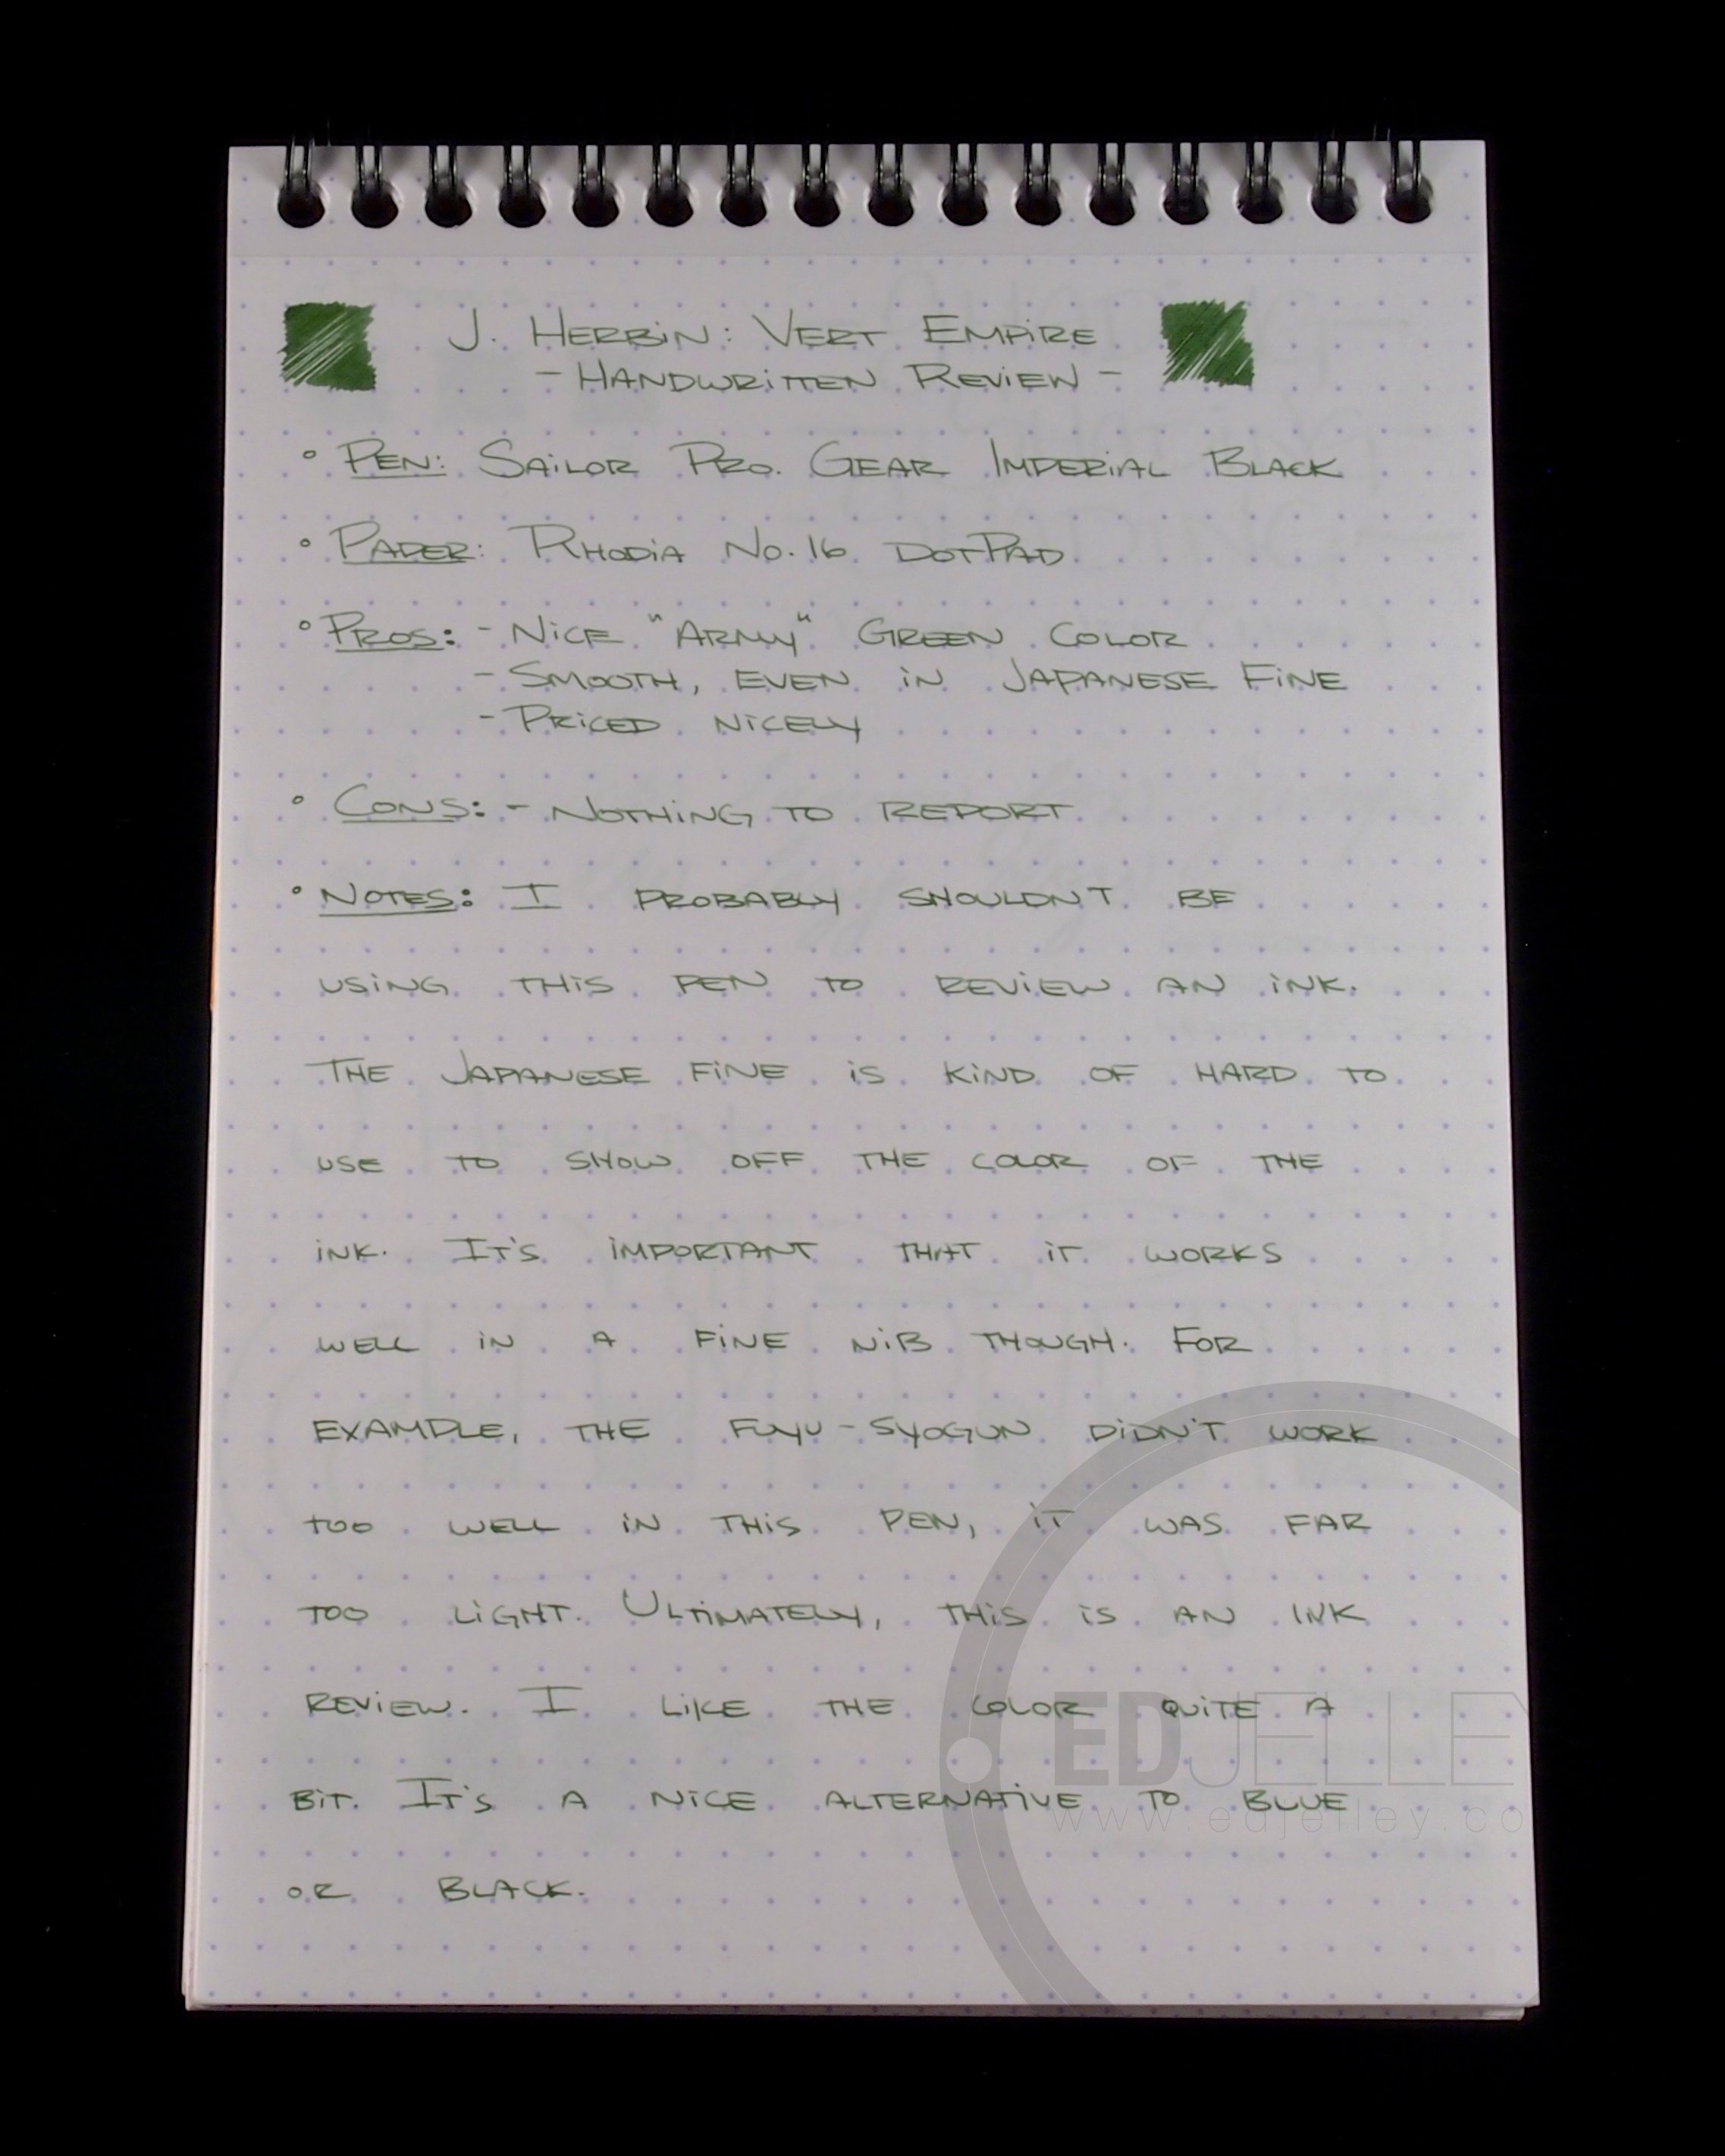 J. Herbin: Vert Empire
- Handwritten Review -
° Pen: Sailor Pro. Gear Imperial Black
° Paper: Rhodia No. 16 DotPad
° Pros: - Nice "Army" Green Color
- Smooth, even in Japanese Fine
- Priced nicely
° Cons: - Nothing to report
° Notes: I probably shouldn't be
using this pen to review an ink.
The Japanese fine is kind of hard to
use to show off the color of the
ink. It's important that it works
well in a fine nib though. For
example, the Fuyu-Syogun didn't work
too well in this pen, it was far
too light. Ultimately, this is an ink
review. I like the color quite a
bit. It's a nice alternative to blue
or black.
EDJELLEY
www.edjelley.co